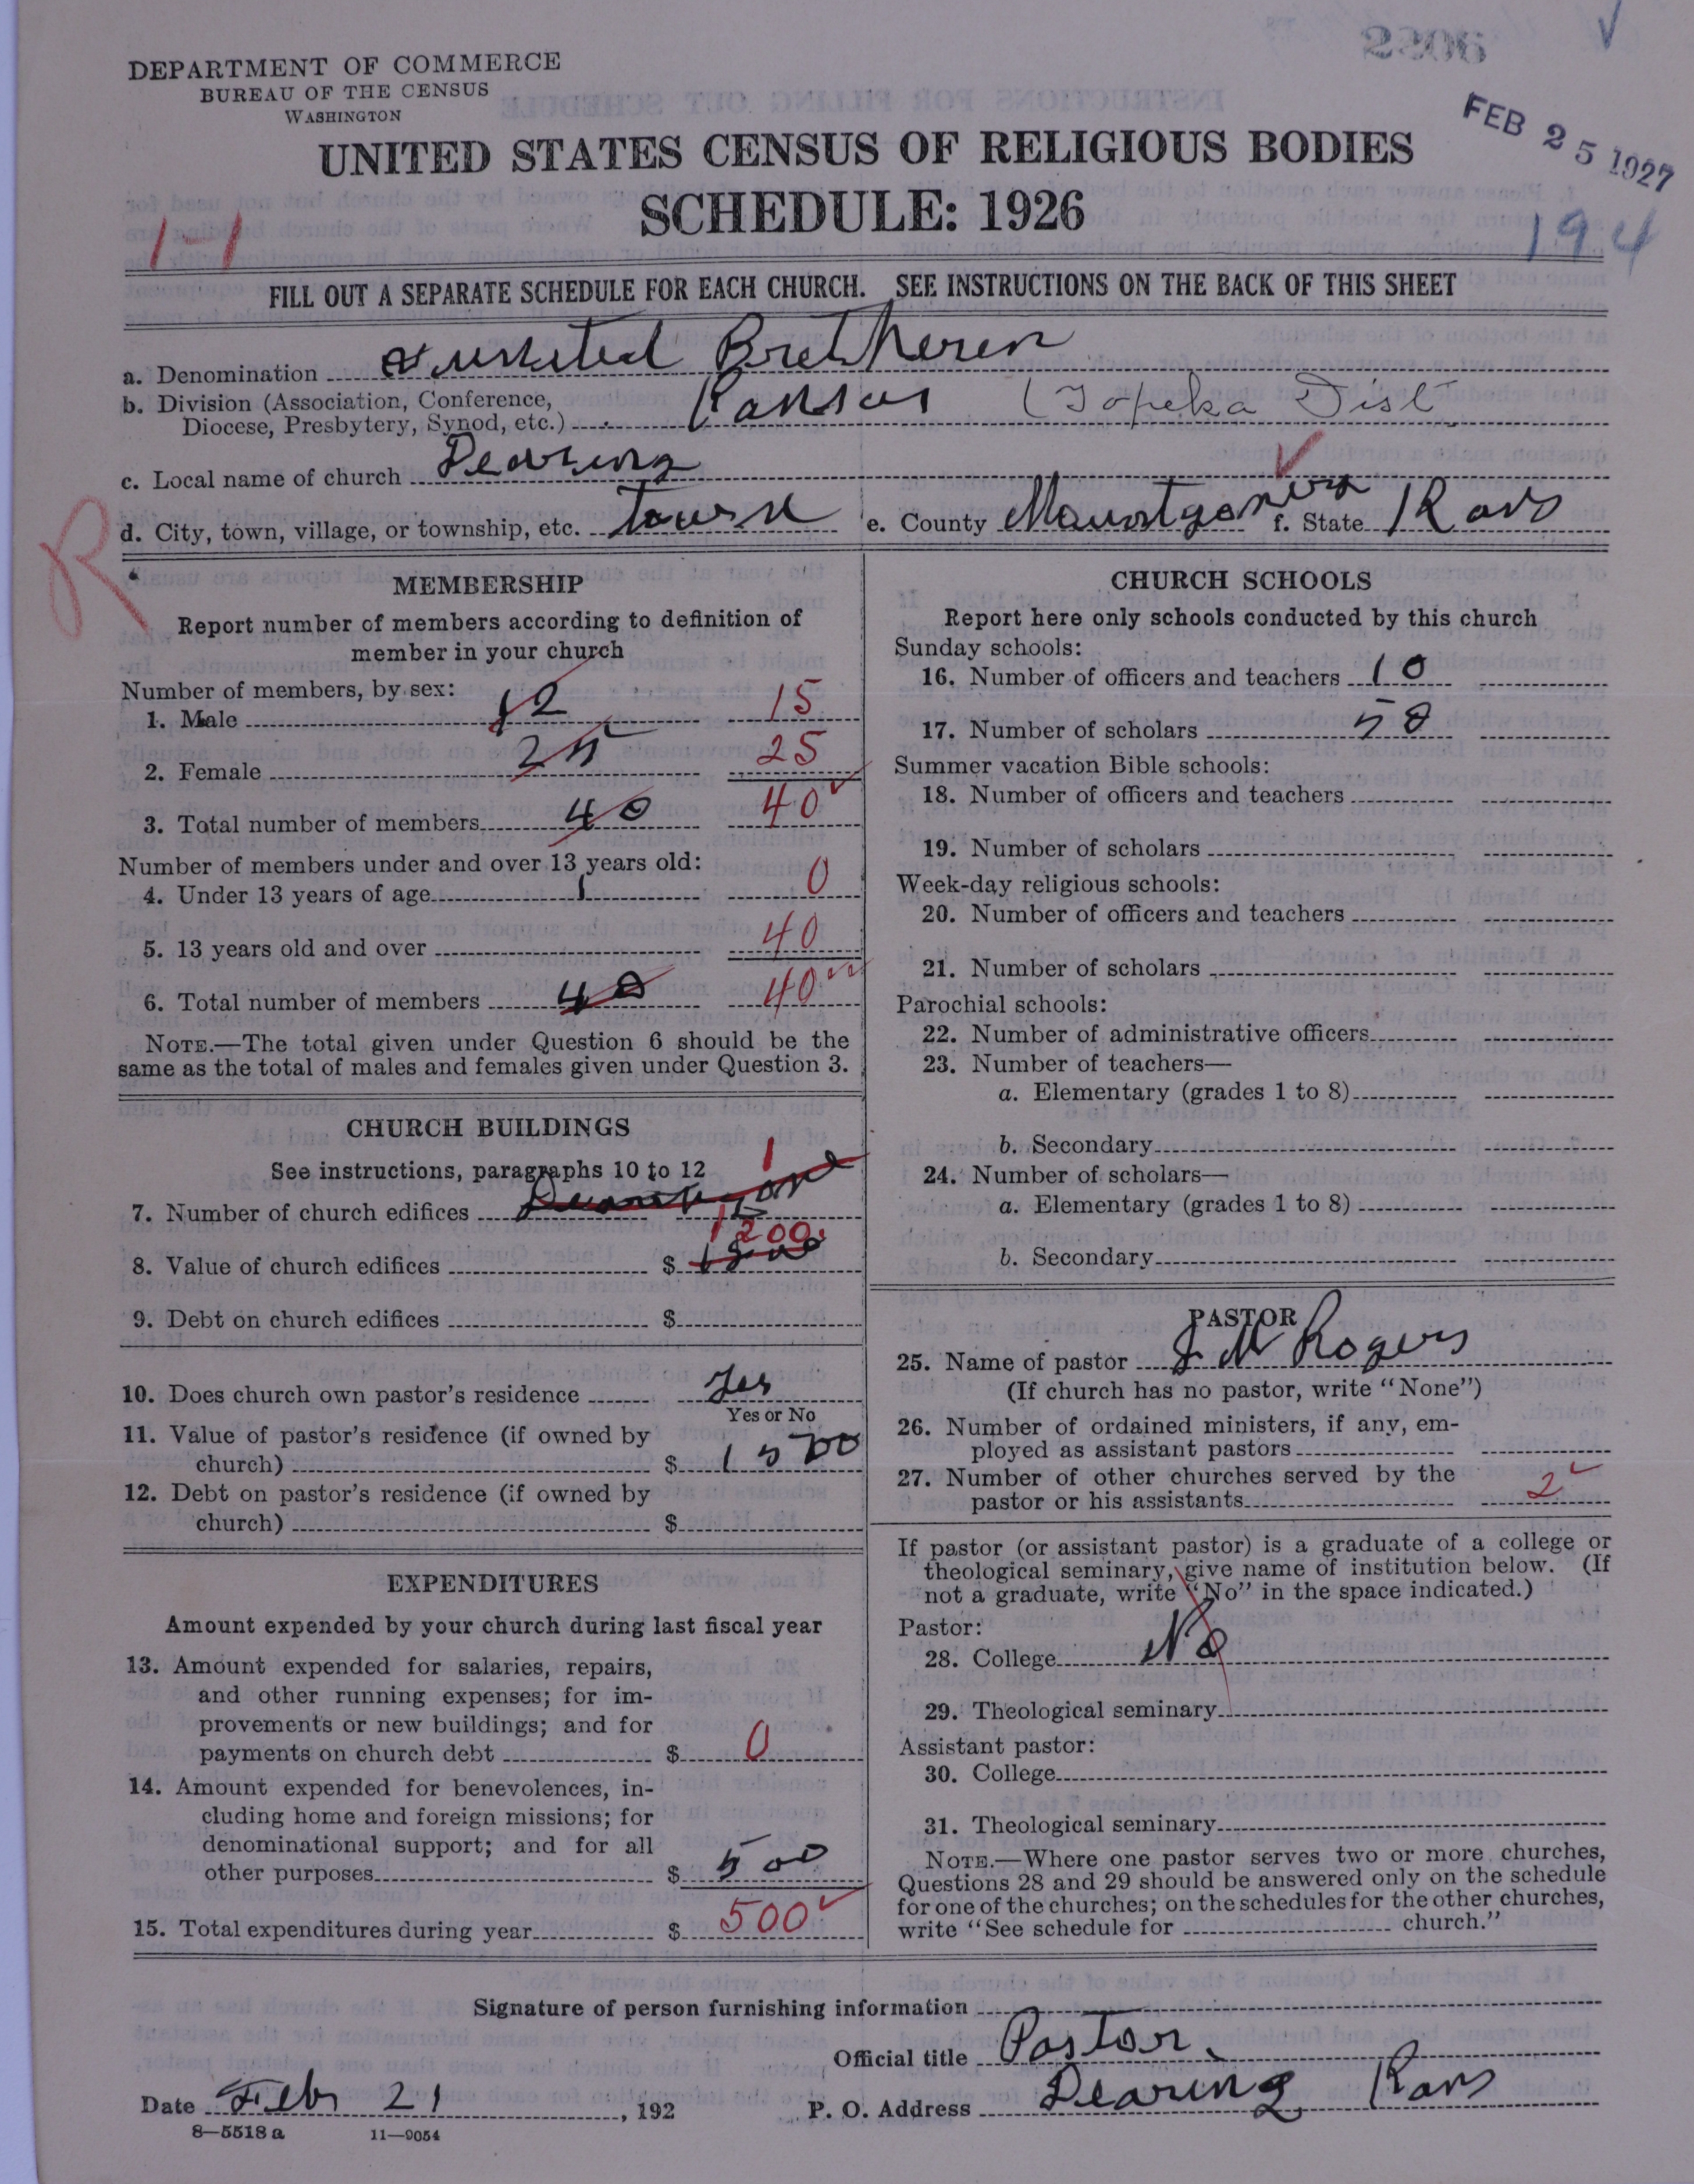 2206
DEPARTMENT OF COMMERCE
BUREAU OF THE CENSUS
WASHINGTON
FEB 25 1927
UNITED STATES CENSUS OF RELIGIOUS BODIES
SCHEDULE: 1926
1-1
194
FILL OUT A SEPARATE SCHEDULE FOR EACH CHURCH. SEE INSTRUCTIONS ON THE BACK OF THIS SHEET
a. Denomination United Bretheren
b. Division (Association, Conference, Diocese, Presbytery, Synod, etc.) Kansas (Topeka Dist
c. Local name of church Dearing
d. City, town, village, or township, etc. town e. County Mountgomery f. State Kans
R
MEMBERSHIP
Report number of members according to definition of
member in your church
Number of members, by sex:
1. Male 12 15
2. Female 25 25
3. Total number of members 40 40
Number of members under and over 13 years old:
4. Under 13 years of age 1 0
5. 13 years old and over 40
6. Total number of members 40 40
NOTE.—The total given under Question 6 should be the
same as the total of males and females given under Question 3.
CHURCH BUILDINGS
See instructions, paragraphs 10 to 12
7. Number of church edifices one 1
8. Value of church edifices $ 1200.
9. Debt on church edifices $
10. Does church own pastor's residence Yes
Yes or No
11. Value of pastor's residence (if owned by
church) $ 1500
12. Debt on pastor's residence (if owned by
church) $
EXPENDITURES
Amount expended by your church during last fiscal year
13. Amount expended for salaries, repairs,
and other running expenses; for im-
provements or new buildings; and for
payments on church debt $ 0
14. Amount expended for benevolences, in-
cluding home and foreign missions; for
denominational support; and for all
other purposes $ 500
15. Total expenditures during year $ 500
CHURCH SCHOOLS
Report here only schools conducted by this church
Sunday schools:
16. Number of officers and teachers 10
17. Number of scholars 58
Summer vacation Bible schools:
18. Number of officers and teachers
19. Number of scholars
Week-day religious schools:
20. Number of officers and teachers
21. Number of scholars
Parochial schools:
22. Number of administrative officers
23. Number of teachers—
a. Elementary (grades 1 to 8)
b. Secondary
24. Number of scholars—
a. Elementary (grades 1 to 8)
b. Secondary
PASTOR
25. Name of pastor J M Rogers
(If church has no pastor, write "None")
26. Number of ordained ministers, if any, em-
ployed as assistant pastors
27. Number of other churches served by the
pastor or his assistants 2
If pastor (or assistant pastor) is a graduate of a college or
theological seminary, give name of institution below. (If
not a graduate, write "No" in the space indicated.)
Pastor:
28. College No
29. Theological seminary
Assistant pastor:
30. College
31. Theological seminary
NOTE.—Where one pastor serves two or more churches,
Questions 28 and 29 should be answered only on the schedule
for one of the churches; on the schedules for the other churches,
write "See schedule for church."
Signature of person furnishing information
Official title Pastor.
Date Feb 21, 192 P. O. Address Dearing Kans
8—5518 a 11—9054